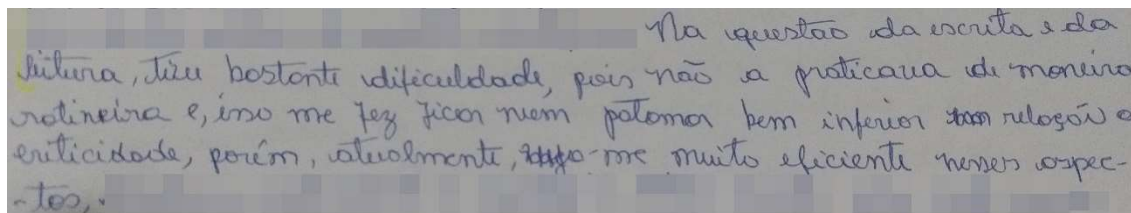 Na questão da escrita e da
leitura, tive bastante dificuldade, pois não a praticava de maneira
rotineira e, isso me fez ficar num patamar bem inferior relação a
criticidade, porém, atualmente, -me muito eficiente nesses aspec-
-tos,.